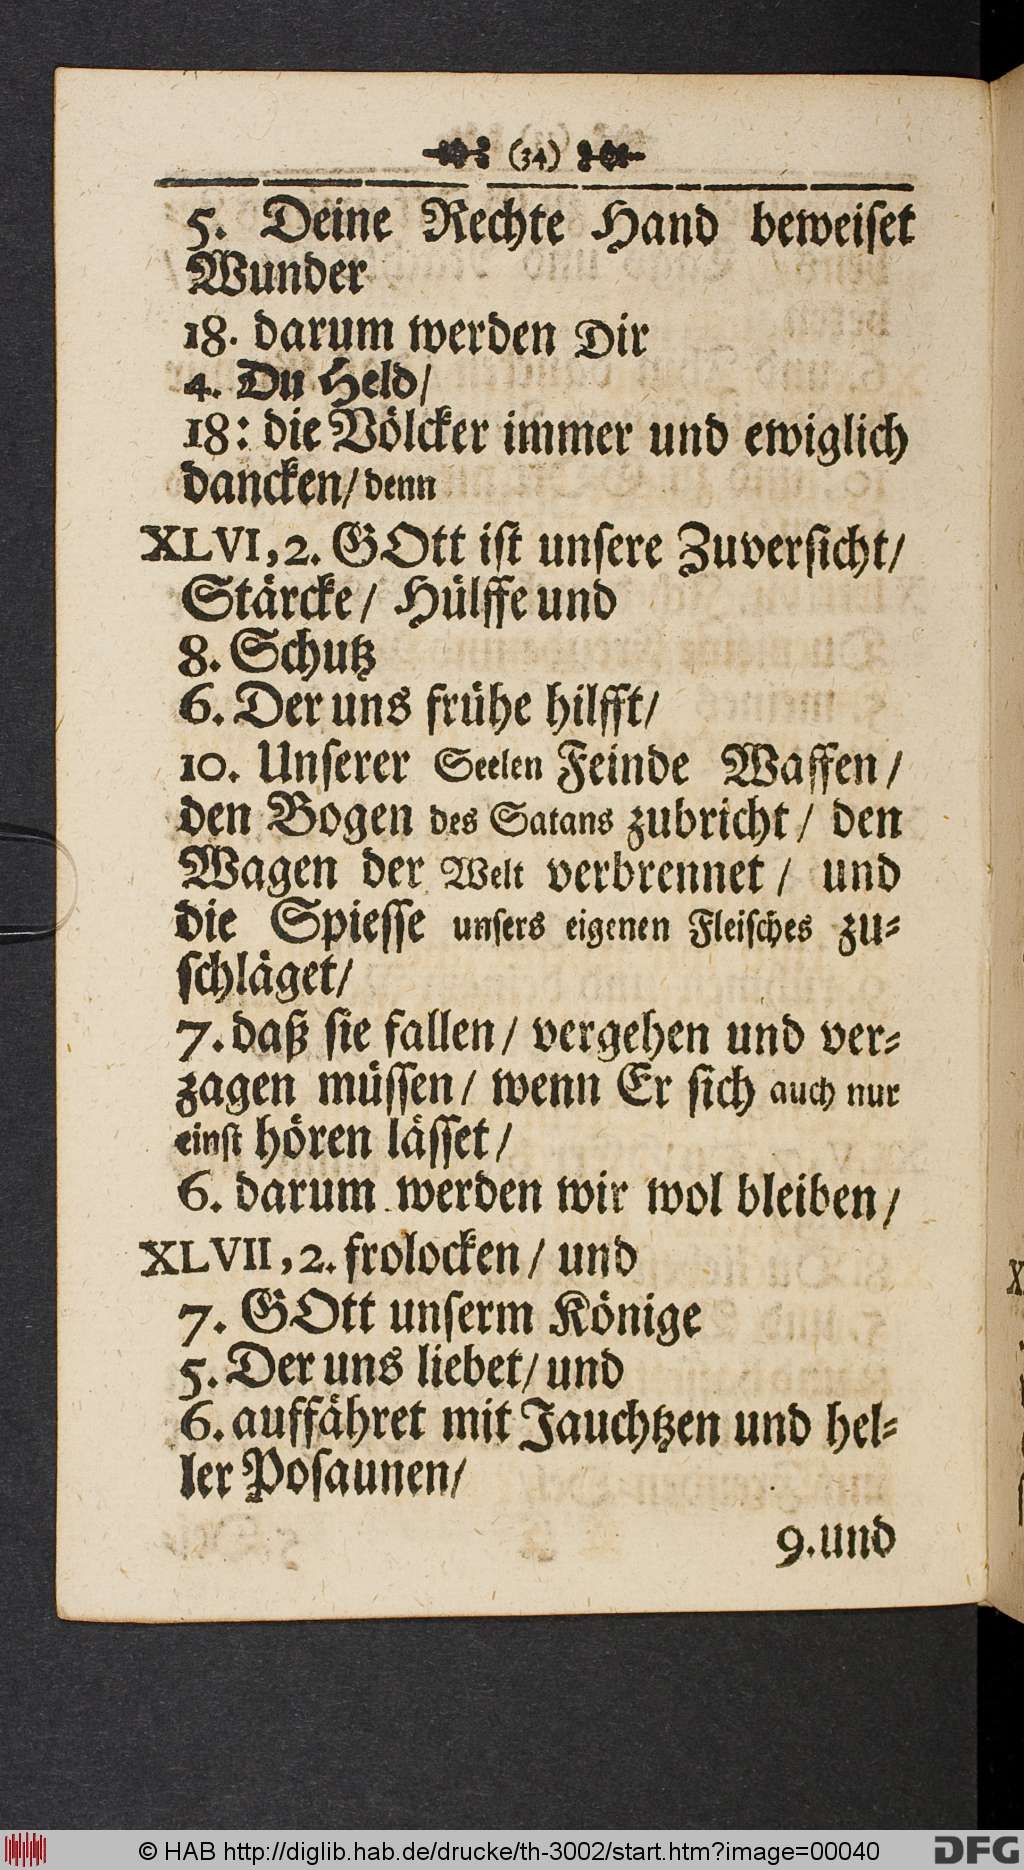 (34)
5. Deine Rechte Hand beweiset
Wunder
18. darum werden Dir
4. Du Held/
18: die Völcker immer und ewiglich
dancken/ denn
XLVI, 2. GOtt ist unsere Zuversicht/
Stärcke/ Hülffe und
8. Schutz
6. Der uns frühe hilfft/
10. Unserer Seelen Feinde Waffen/
den Bogen des Satans zubricht/ den
Wagen der Welt verbrennet/ und
die Spiesse unsers eigenen Fleisches zu-
schläget/
7. daß sie fallen/ vergehen und ver-
zagen müssen/ wenn Er sich auch nur
einst hören lässet/
6. darum werden wir wol bleiben/
XLVII, 2. frolocken/ und
7. GOtt unserm Könige
5. Der uns liebet/ und
6. auffähret mit Jauchtzen und hel-
ler Posaunen/
9. und
© HAB http://diglib.hab.de/drucke/th-3002/start.htm?image=00040
DFG